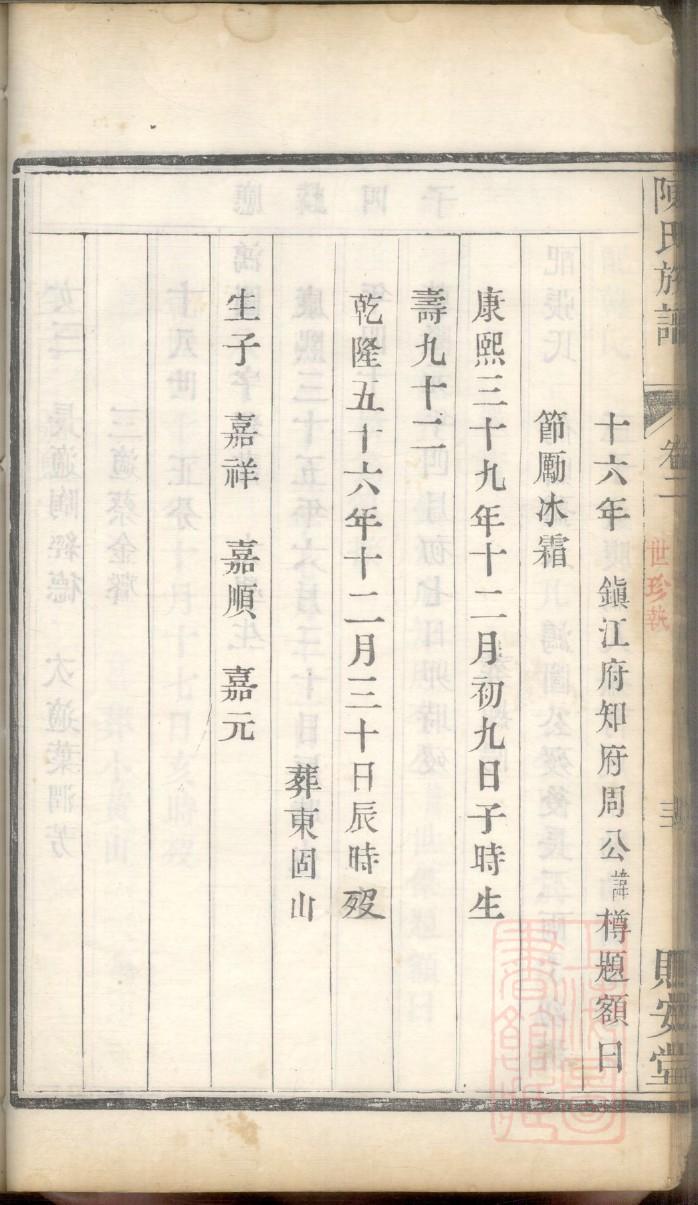 陳氏族譜
卷二
世珍執
貽安堂
十六年 鎮江府知府周公諱樽題額曰
節勵冰霜
康熙三十九年十二月初九日子時生
壽九十二
乾隆五十六年十二月三十日辰時歿
葬東固山
生子 嘉祥 嘉順 嘉元